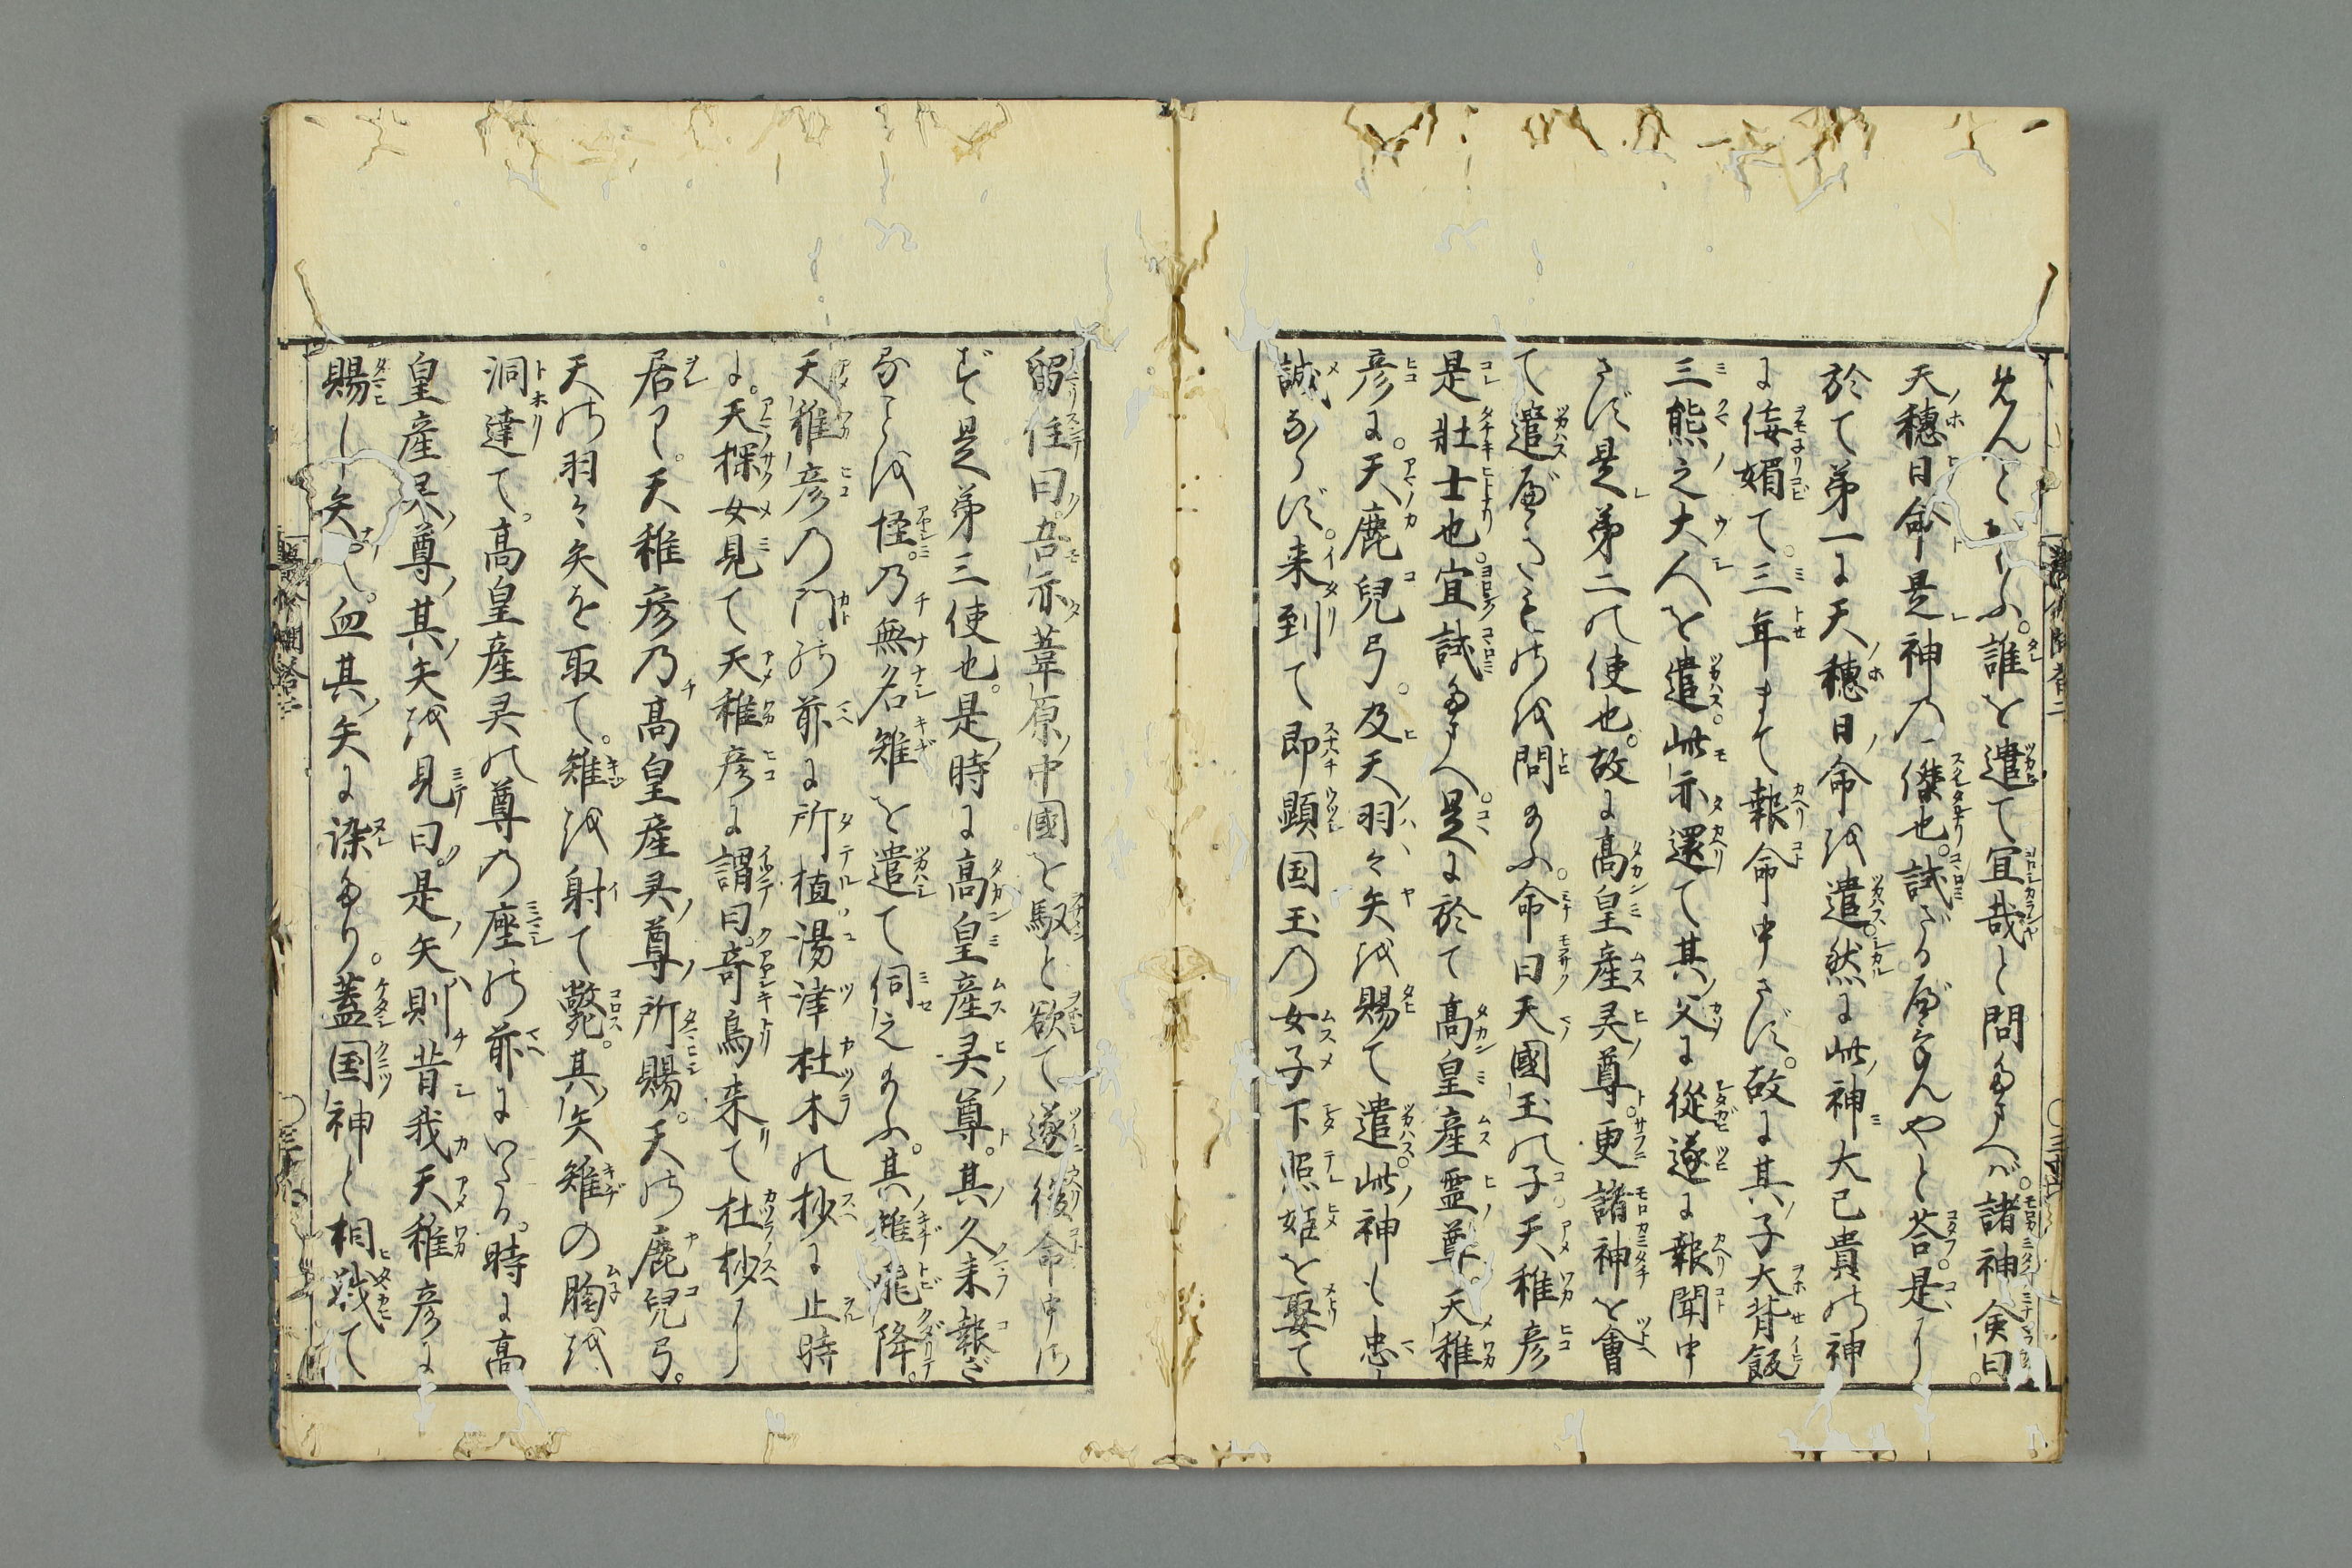 めんとおもふ。誰を遣て宜哉と問たまへば。諸神僉曰。
天穂日命是神の傑也。試ざるべけんやと荅。是に
於て第一に天穂日命を遣。然に此神大己貴の神
に侫媚て。三年まて報命申さず。故に其子大背飯
三熊之大人を遣。此亦還て其父に從遂に報聞申
さず是第二の使也。故に高皇産灵尊更諸神を會
て遣べきものを問給ふ。命曰天國玉の子天稚彦
是壮士也。宜試たまへ。是に於て高皇産霊尊。天稚
彦に。天鹿兒弓。及天羽々矢を賜て遣。此神も忠
誠ならず。来到て即顕国玉の女子下照姫を娶て
留住曰。吾亦葦原中國を馭と欲て遂復命申さ
ず是第三使也。是時に高皇産灵尊。其久来報ざ
ることを怪。乃無名雉を遣て伺之給ふ。其雉飛降。
天稚彦の門の前に所植湯津杜木の杪に止時
に。天探女見て天稚彦に謂曰。奇鳥来て杜杪に
居りと。天稚彦乃高皇産灵尊所賜。天の鹿兒弓。
天の羽々矢を取て。雉を射て斃。其矢雉の胸を
洞達て。高皇産灵の尊の座の前にいたる。時に高
皇産灵尊其矢を見曰。是矢則昔我天稚彦に
賜し矢也。血其矢に染たり。蓋国神と相戦て